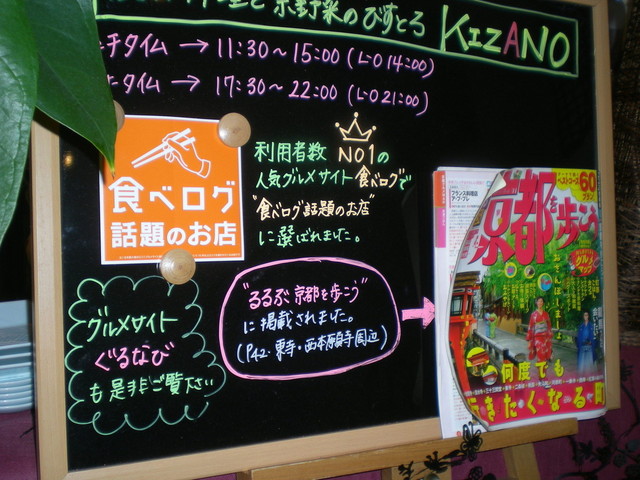 京野菜のびすとろ KIZANO
チタイム → 11:30～15:00 (L·O 14:00)
タイム → 17:30～22:00 (L·O 21:00)
食べログ
話題のお店
利用者数 NO1の
人気グルメサイト食べログで
"食べログ話題のお店"
に選ばれました。
グルメサイト
ぐるなび
も是非ご覧下さい
"るるぶ 京都を歩こう"
に掲載されました。
(P42·東寺·西本願寺周辺)
ベストコース60
京都を歩こう
グルメ
マップ
何度でも
きたくなる町